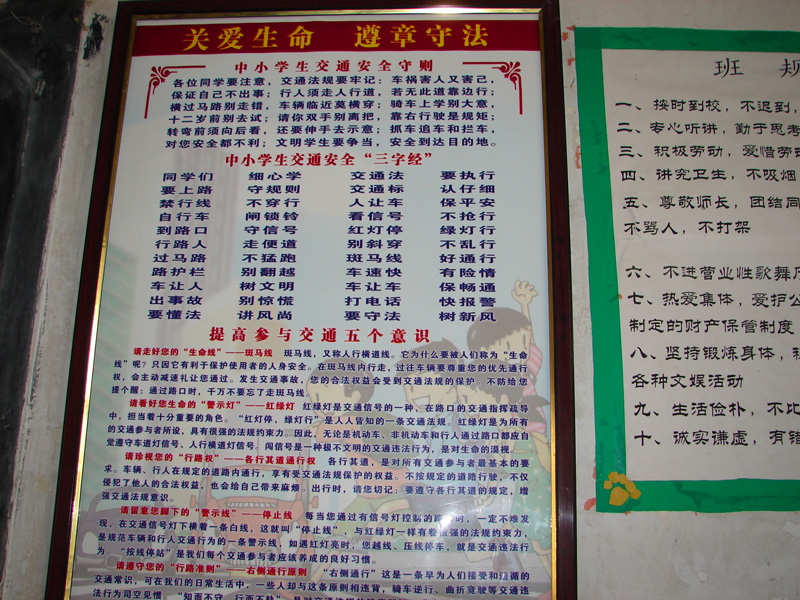 关爱生命 遵章守法
中小学生交通安全守则
各位同学要注意，交通法规要牢记；车祸害人又害己，
保证自己不出事；行人须走人行道，若无此道靠边行；
横过马路别走错，车辆临近莫横穿；骑车上学别大意，
十二岁前别去试；请你双手别离把，靠右行驶是规矩；
转弯前须向后看，还要伸手去示意；抓车追车和拦车，
对您安全都不利；文明学生要争当，安全到达目的地。
中小学生交通安全“三字经”
同学们 细心学 交通法 要执行
要上路 守规则 交通标 认仔细
禁行线 不穿行 人让车 保平安
自行车 闸锁铃 看信号 不抢行
到路口 守信号 红灯停 绿灯行
行路人 走便道 别斜穿 不乱行
过马路 不猛跑 斑马线 好通行
路护栏 别翻越 车速快 有险情
车让人 树文明 车让车 保畅通
出事故 别惊慌 打电话 快报警
要懂法 讲风尚 要守法 树新风
提高参与交通五个意识
请走好您的“生命线”——斑马线 斑马线，又称人行横道线。它为什么要被人们称为“生命
线”呢？只因它有利于保护使用者的人身安全。在斑马线内行走，过往车辆要尊重您的优先通行
权，会主动减速礼让您通过。发生交通事故，您的合法权益会受到交通法规的保护。不防给您
提个醒：通过路口时，千万不要忘了走斑马线。
请看好您生命的“警示灯”——红绿灯 红绿灯是交通信号的一种，在路口的交通指挥疏导
中，担当着十分重要的角色。“红灯停，绿灯行”是人人皆知的一条交通法规。红绿灯是为所有
的交通参与者所设，具有很强的法规约束力。因此，无论是机动车、非机动车和行人通过路口都应自
觉遵守车道灯信号、人行横道灯信号。闯信号是一种极不文明的交通违法行为，是对生命的漠视。
请珍视您的“行路权”——各行其道通行权 各行其道，是对所有交通参与者最基本的要
求。车辆、行人在规定的道路内通行，享有受交通法规保护的权益。不按规定的道路行驶，不仅
侵犯了他人的合法权益，也会给自己带来麻烦。出行时，请您切记：要遵守各行其道的规定，增
强交通法规意识。
请留意您脚下的“警示线”——停止线 每当您通过有信号灯控制的路口时，一定不难发
现，在交通信号灯下横着一条白线，这就叫“停止线”，与红绿灯一样有着很强的法规约束力，
是规范车辆和行人交通行为的一条警示线，如遇红灯亮时，您越线、压线停车，就是交通违法行
为。“按线停站”是我们每个交通参与者应该养成的良好习惯。
请遵守您的“行路准则”——右侧通行原则 “右侧通行”这是一条早为人们接受和遵循的
交通常识，可在我们的日常生活中，一些人却与这条原则相违背，骑车逆行、曲折竞驶等交通违
法行为司空见惯。“知而不守，行而不勒”
班 规
一、按时到校，不迟到，
二、专心听讲，勤于思考
三、积极劳动，爱惜劳动
四、讲究卫生，不吸烟
五、尊敬师长，团结同
不骂人，不打架
六、不进营业性歌舞厅
七、热爱集体，爱护公
制定的财产保管制度
八、坚持锻炼身体，积
各种文娱活动
九、生活俭朴，不比
十、诚实谦虚，有错